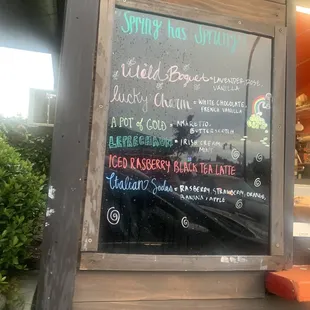 Spring has Sprung
Wild Boquet = LAVENDER, ROSE,
VANILLA
lucky Charm = WHITE CHOCOLATE,
FRENCH VANILLA
A POT of GOLD = AMARETTO,
BUTTERSCOTCH
LEPRECHAUN = IRISH CREAM
MINT
ICED RASBERRY BLACK TEA LATTE
Italian Sodas = RASPBERRY, STRAWBERRY, ORANGE,
BANANA, APPLE